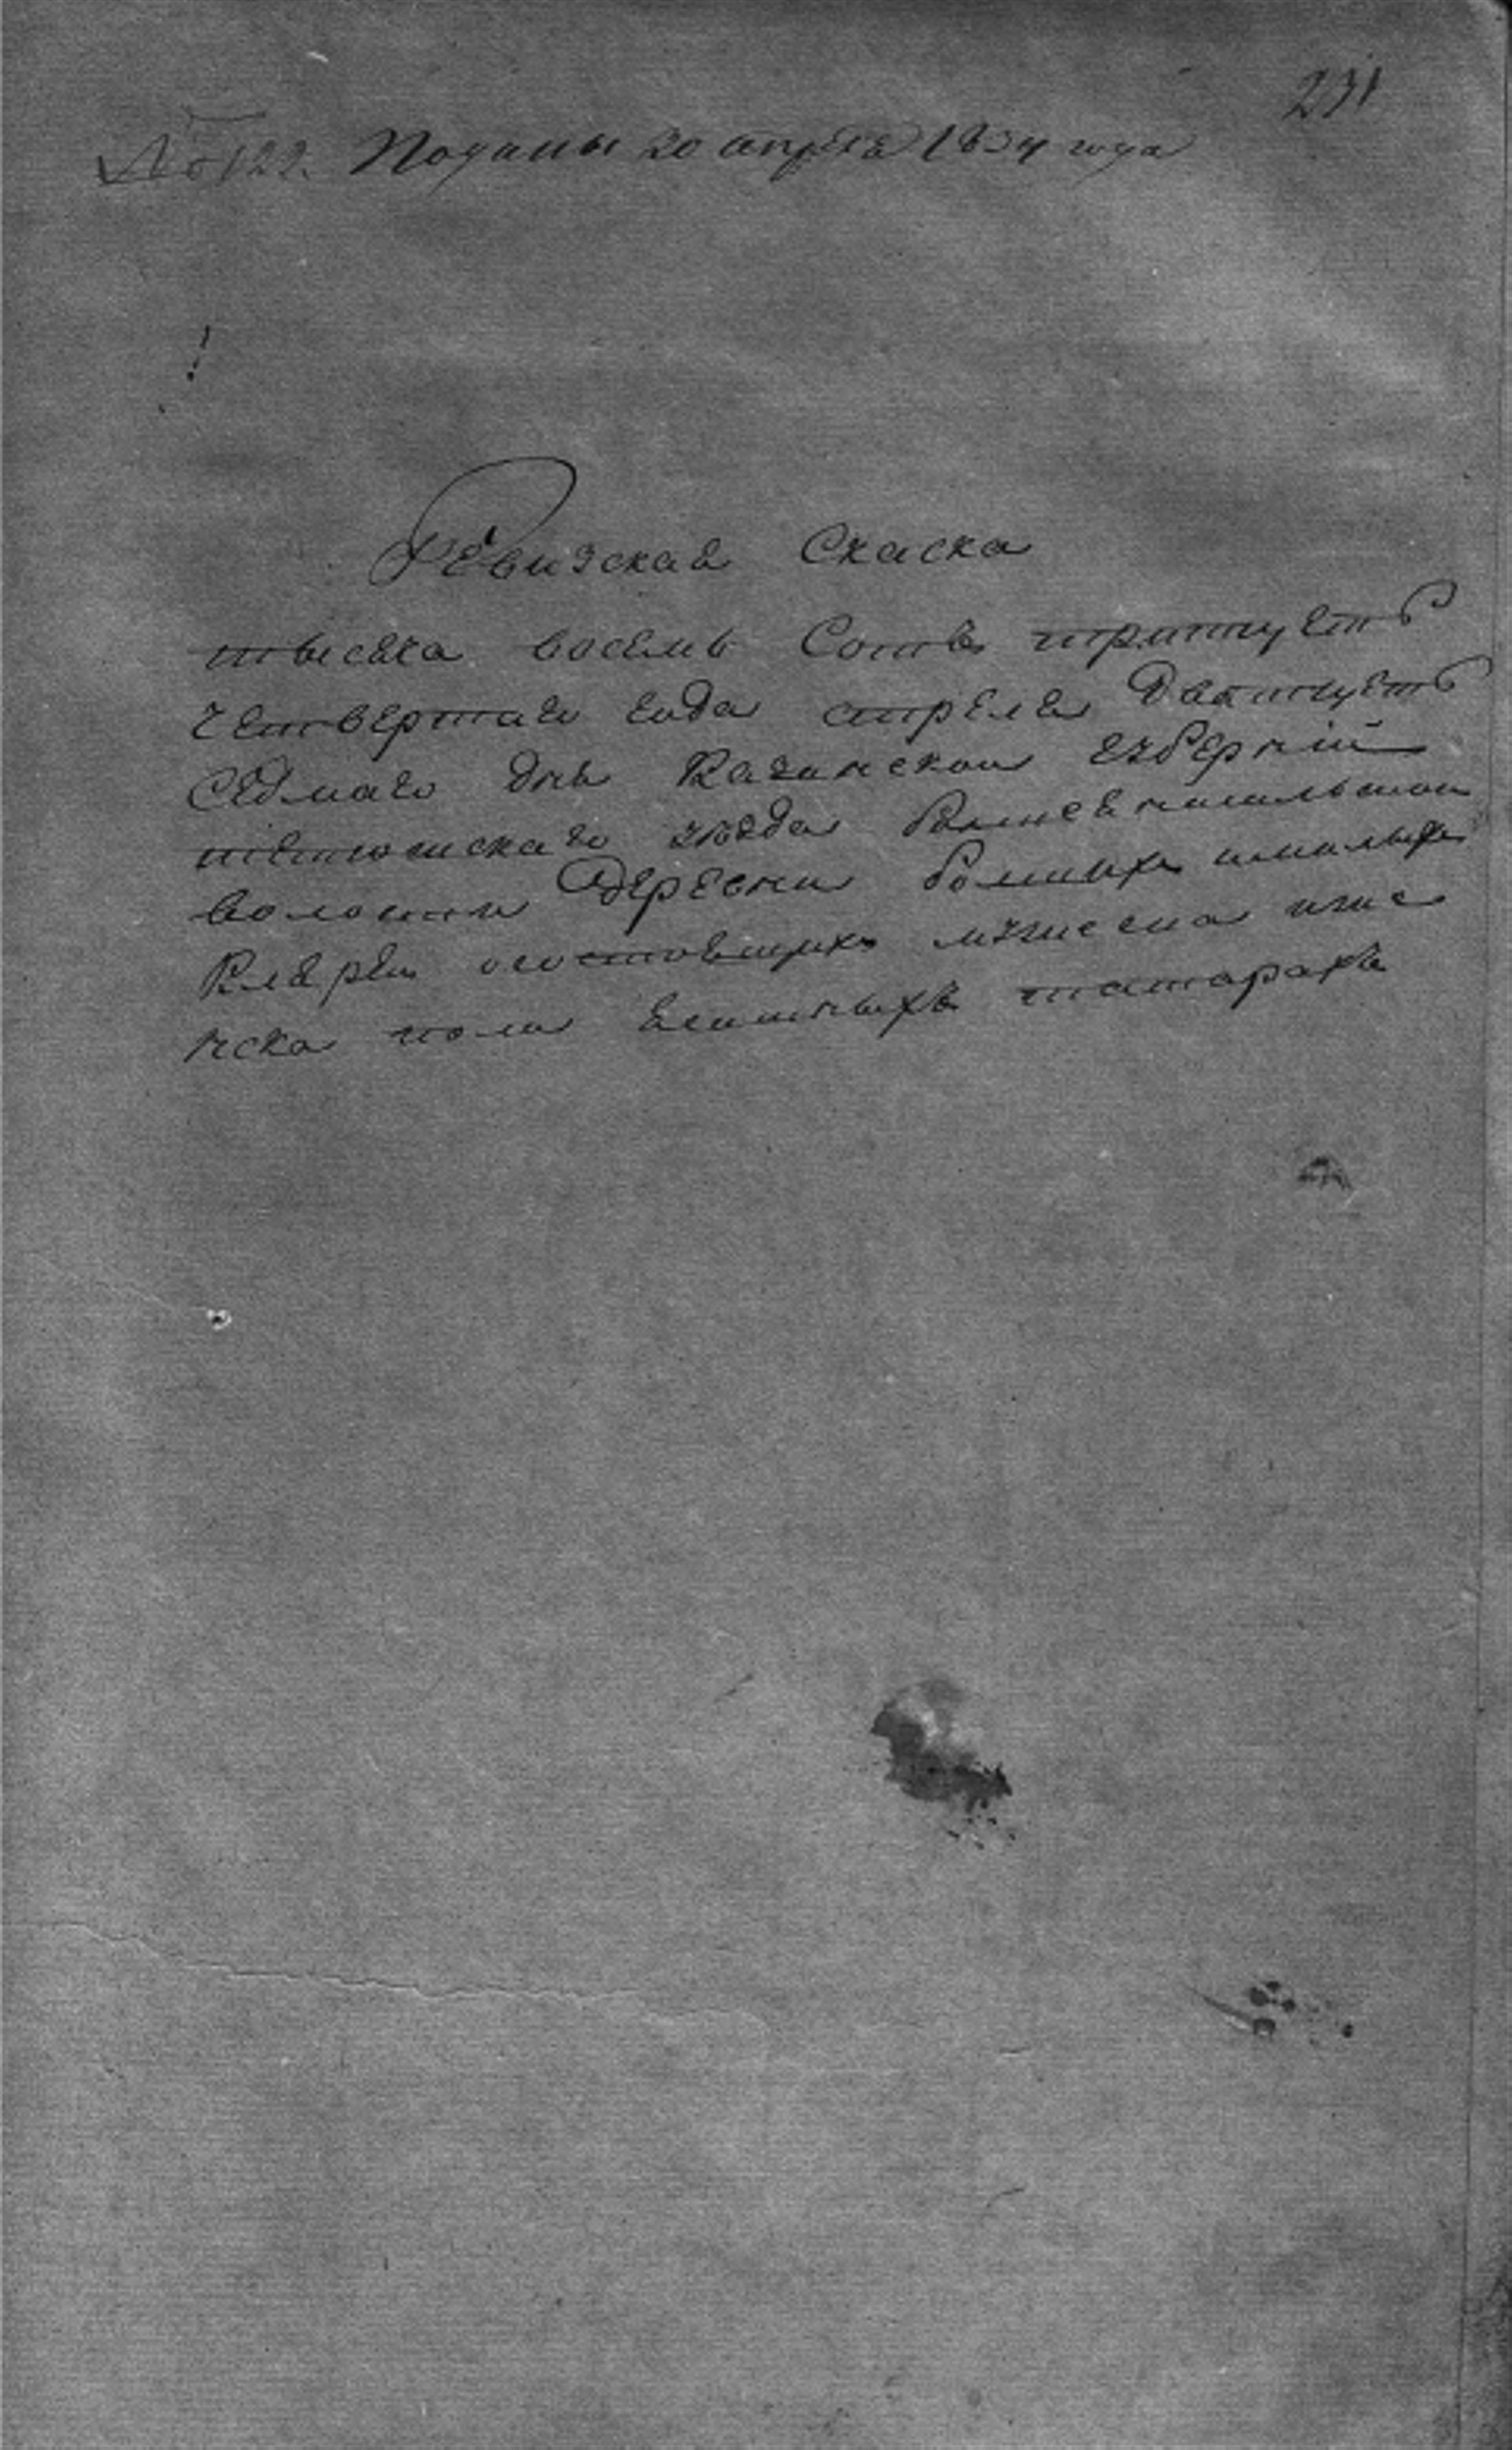 231
№ 122. Поданы 30 апреля 1834 года
Ревизская Скаска
тысяча восемь Сотъ тритцеть
четвертаго года апреля Дватцеть
седмаго дня Казанской губерніи
тетюшскаго уезда
волости деревни болшихъ ималыхъ
Кляреи осостовщихъ мужеска иже
нска пола ясашныхъ татарахъ